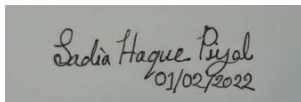 Sadia Haque Piyal
01/02/2022